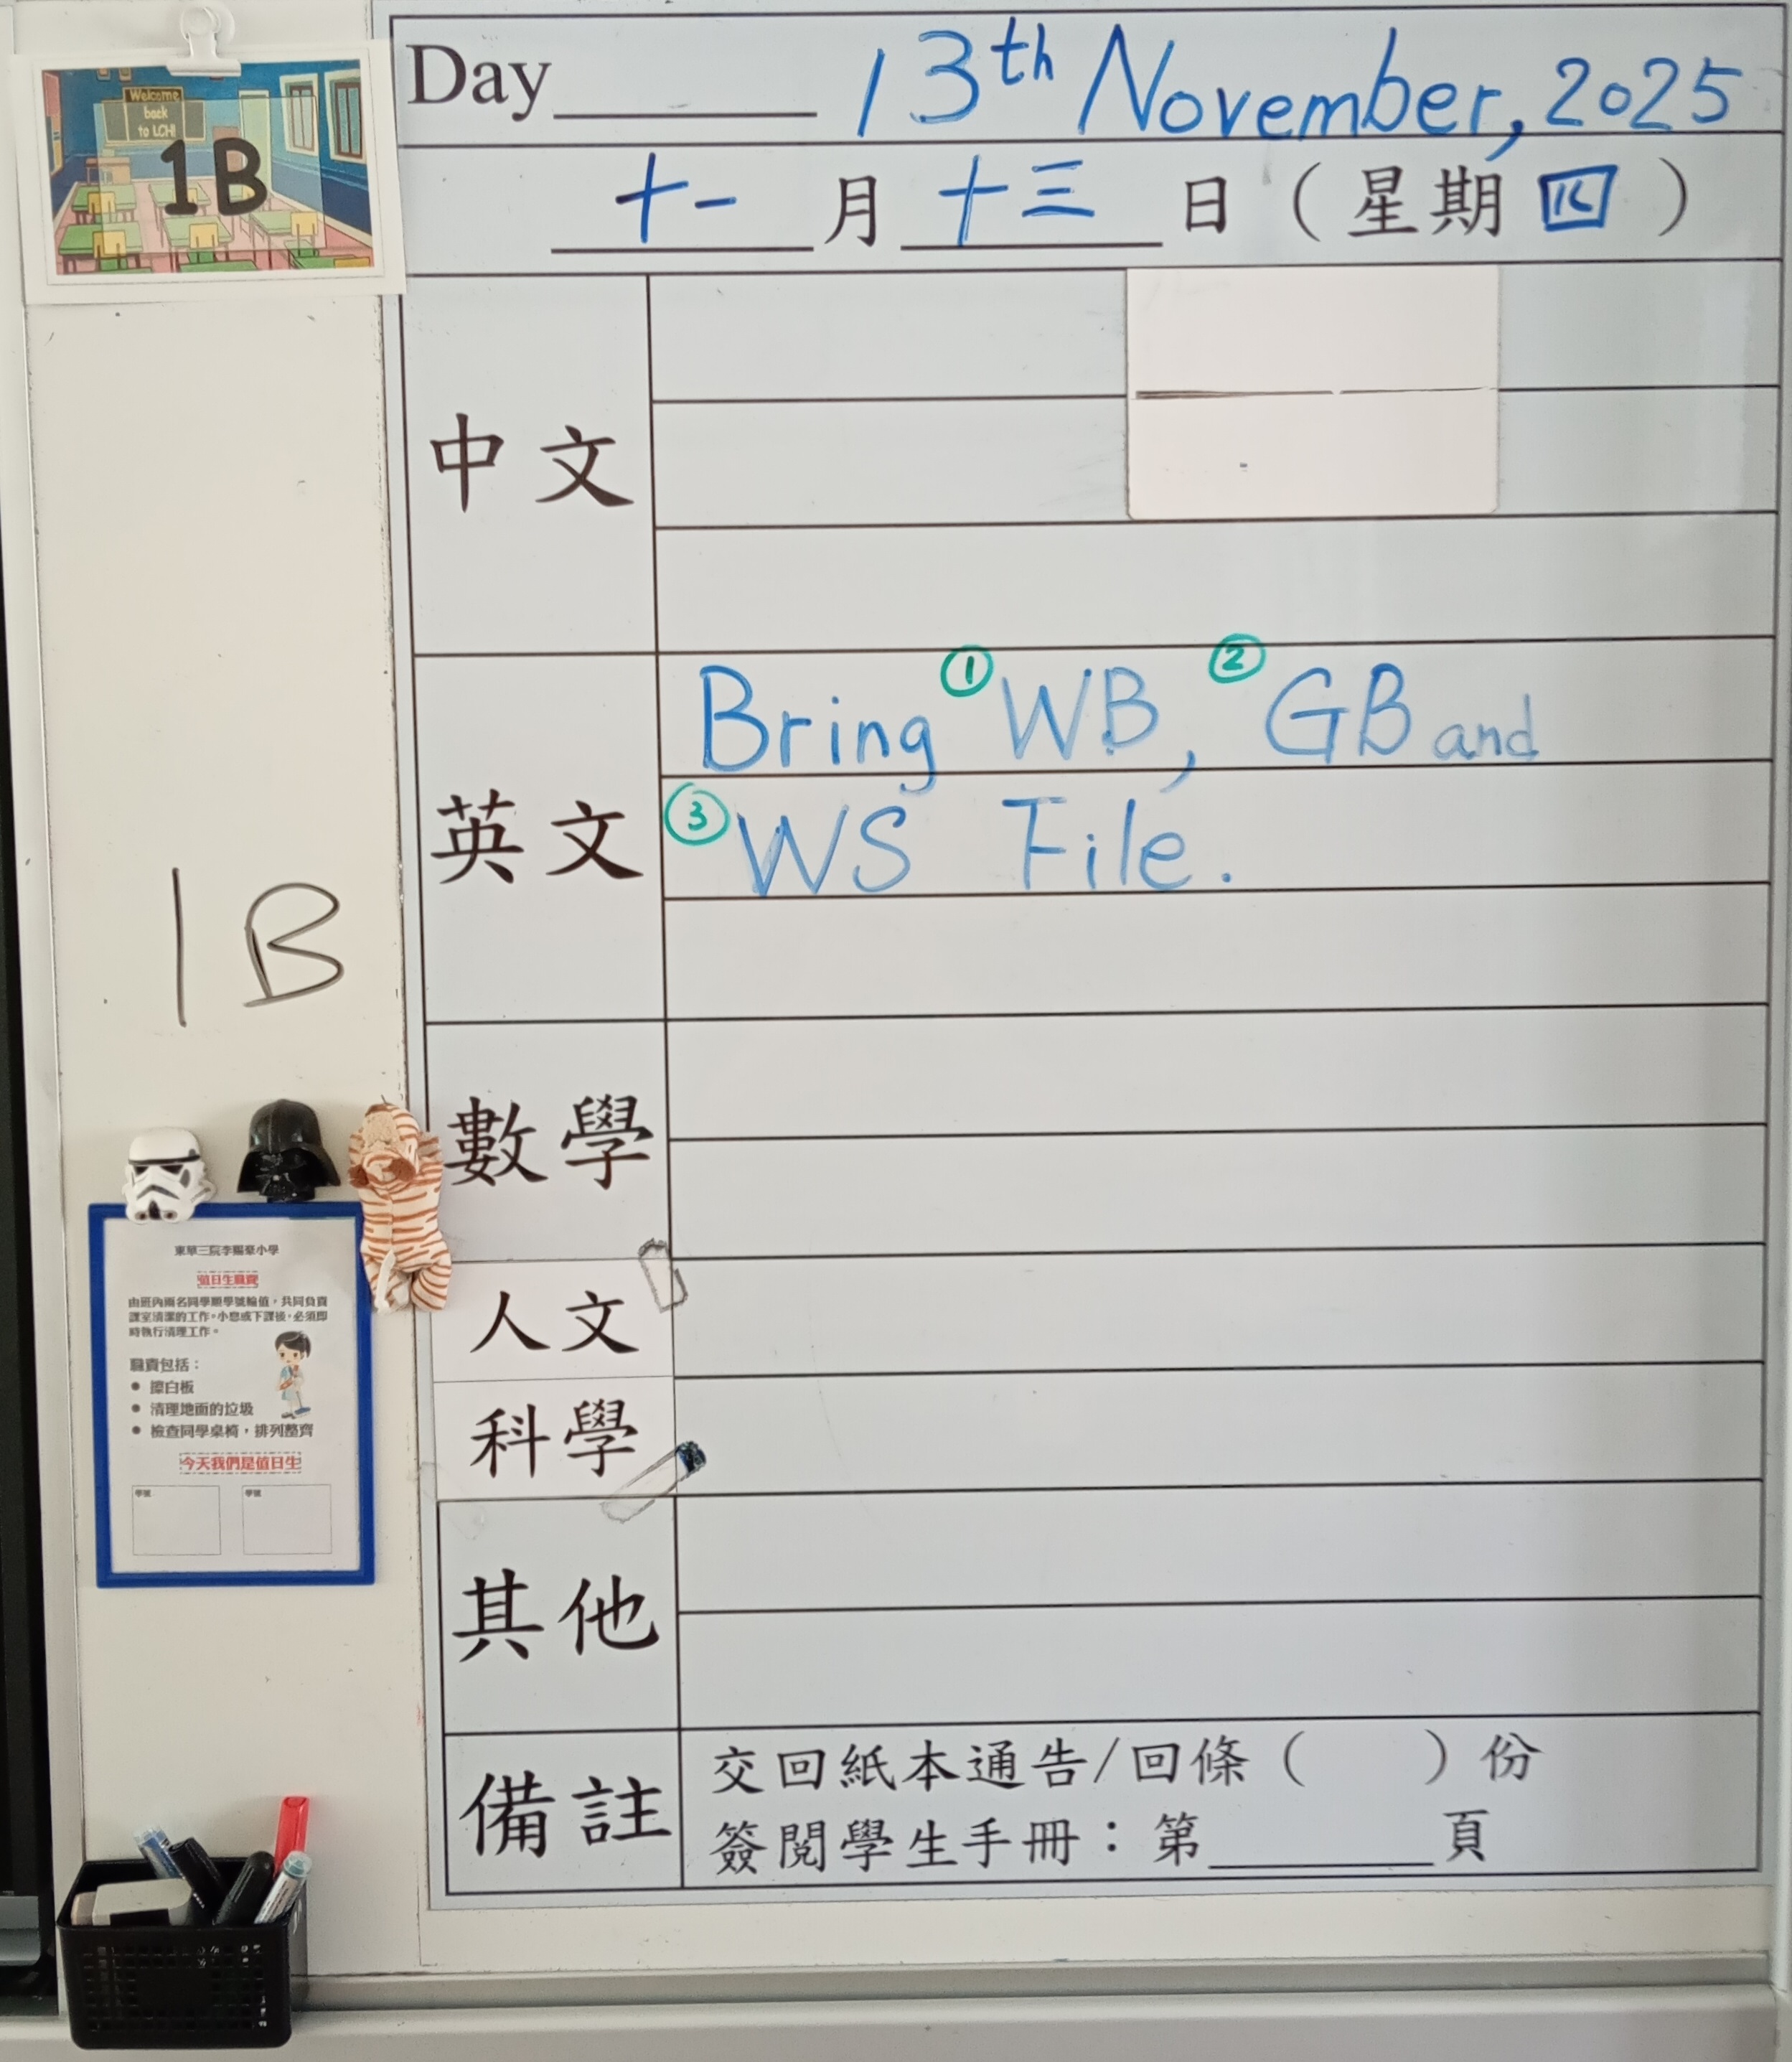 Welcome
back
to LCH!
1B
Day 13th November, 2025
十一月十三日（星期四）
中文
英文
Bring ①WB, ②GB and
③WS File.
1B
數學
人文
科學
其他
備註
交回紙本通告/回條（ ）份
簽閱學生手冊：第 頁
東華三院李賜豪小學
值日生職責
由班內兩名同學順學號輪值，共同負責
課室清潔的工作。小息或下課後，必須即
時執行清理工作。
職責包括：
● 擦白板
● 清理地面的垃圾
● 檢查同學桌椅，排列整齊
今天我們是值日生
學號 學號